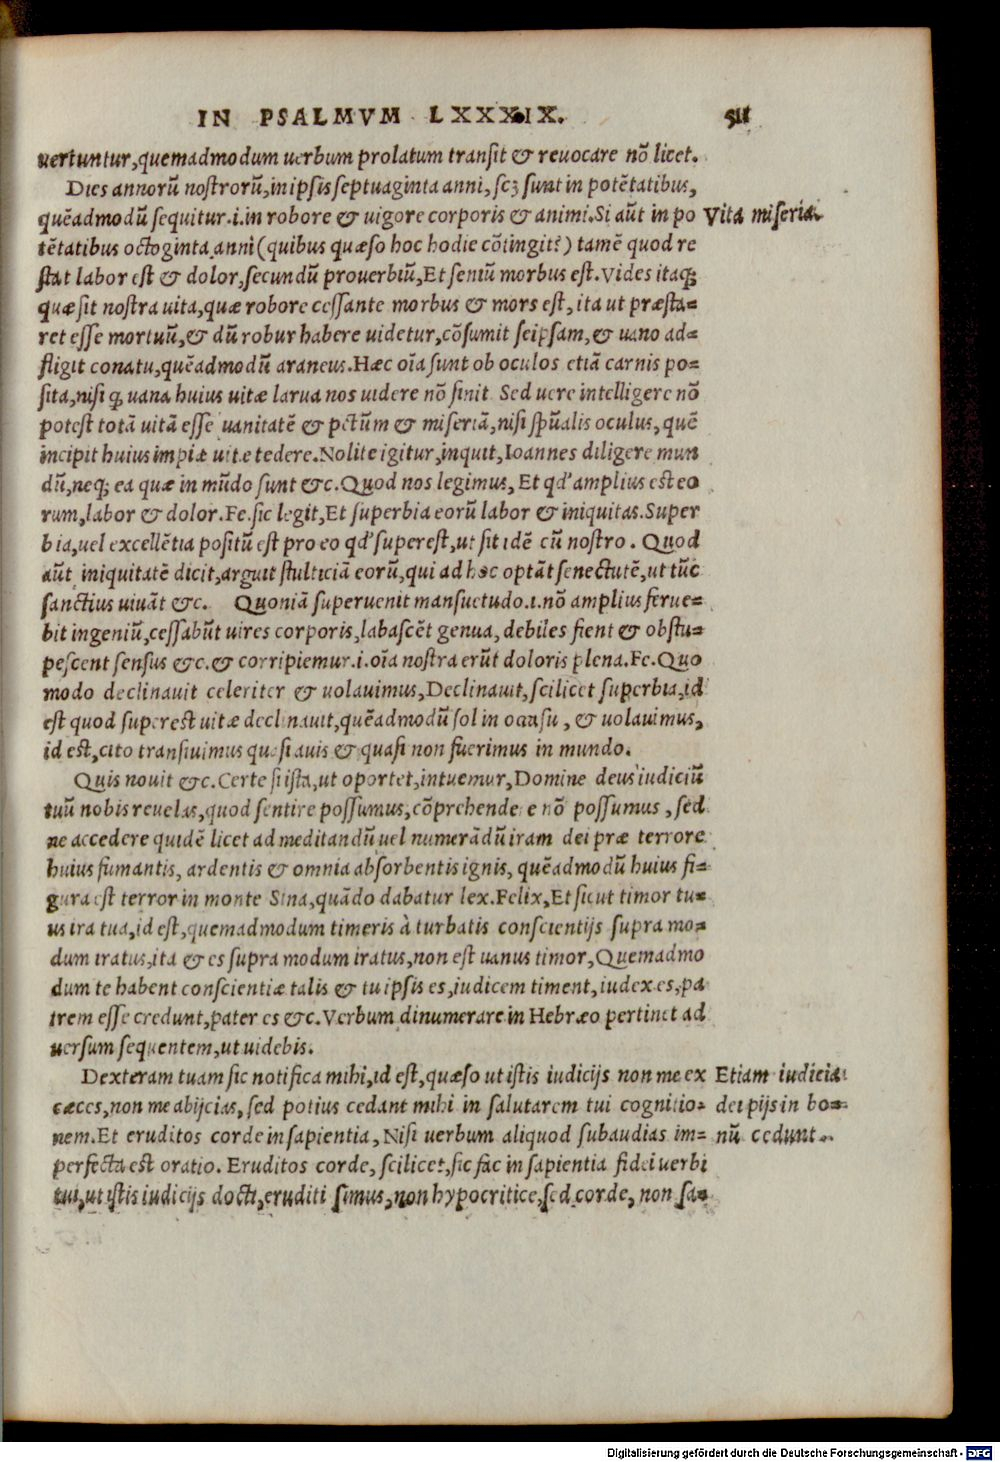 IN PSALMVM LXXXIX. 511
uertuntur,quemadmodum uerbum prolatum transit & reuocare nõ licet.
Dies annorũ nostrorũ,in ipsis septuaginta anni, scʒ sunt in potẽtatibus,
quẽadmodũ sequitur.i.in robore & uigore corporis & animi.Si aũt in po
Vita miseria.
tẽtatibus octoginta anni (quibus quæso hoc hodie cõtingit?) tamẽ quod re
stat labor est & dolor,secundũ prouerbiũ,Et seniũ morbus est.Vides itaq;
quæ sit nostra uita,quæ robore cessante morbus & mors est, ita ut præsta=
ret esse mortuũ,& dũ robur habere uidetur,cõsumit seipsam,& uano ad=
fligit conatu,quẽadmodũ araneus.Hæc oĩa sunt ob oculos etiã carnis po=
sita,nisi q; uana huius uitæ larua nos uidere nõ sinit. Sed uere intelligere nõ
potest totã uitã esse uanitatẽ & pctũm & miseriã,nisi spũalis oculus, quẽ
incipit huius impiæ uitæ tedere.Nolite igitur,inquit,Ioannes diligere mun
dũ,neq; ea quæ in mũdo sunt &c.Quod nos legimus, Et qd' amplius est eo
rum,labor & dolor.Fe.sic legit,Et superbia eorũ labor & iniquitas.Super
bia,uel excellẽtia positũ est pro eo qd' superest,ut sit idẽ cũ nostro. Quod
aũt iniquitatẽ dicit,arguit stulticiã eorũ,qui ad hoc optãt senectutẽ,ut tũc
sanctius uiuãt &c. Quoniã superuenit mansuetudo.i.nõ amplius ferue=
bit ingeniũ,cessabũt uires corporis,labascẽt genua, debiles fient & obstu=
pescent sensus &c.& corripiemur.i.oĩa nostra erũt doloris plena.Fe.Quo
modo declinauit celeriter & uolauimus,Declinauit,scilicet superbia,id
est quod superest uitæ declinauit,quẽadmodũ sol in occasu, & uolauimus,
id est,cito transiuimus quasi auis & quasi non fuerimus in mundo.
Quis nouit &c.Certe si ista,ut oportet,intuemur,Domine deus iudiciũ
tuũ nobis reuelas,quod sentire possumus,cõprehendere nõ possumus, sed
ne accedere quidẽ licet ad meditandũ uel numerãdũ iram dei præ terrore
huius fumantis, ardentis & omnia absorbentis ignis, quẽadmodũ huius fi=
gura est terror in monte Sina,quãdo dabatur lex.Felix,Et sicut timor tu=
us ira tua,id est,quemadmodum timeris à turbatis conscientijs supra mo=
dum iratus,ita & es supra modum iratus,non est uanus timor,Quemadmo
dum te habent conscientiæ talis & tu ipsis es,iudicem timent,iudex es,pa
trem esse credunt,pater es &c.Verbum dinumerare in Hebræo pertinet ad
uersum sequentem,ut uidebis.
Dexteram tuam sic notifica mihi,id est,quæso ut istis iudicijs non me ex
Etiam iudicia
cæces,non me abijcias,sed potius cedant mihi in salutarem tui cognitio=
dei pijs in bo=
nem.Et eruditos corde in sapientia, Nisi uerbum aliquod subaudias im=
nũ cedunt.
perfecta est oratio. Eruditos corde, scilicet,sic fac in sapientia fidei uerbi
tui,ut istis iudicijs docti,eruditi simus,non hypocritice,sed corde, non sa=
Digitalisierung gefördert durch die Deutsche Forschungsgemeinschaft - DFG